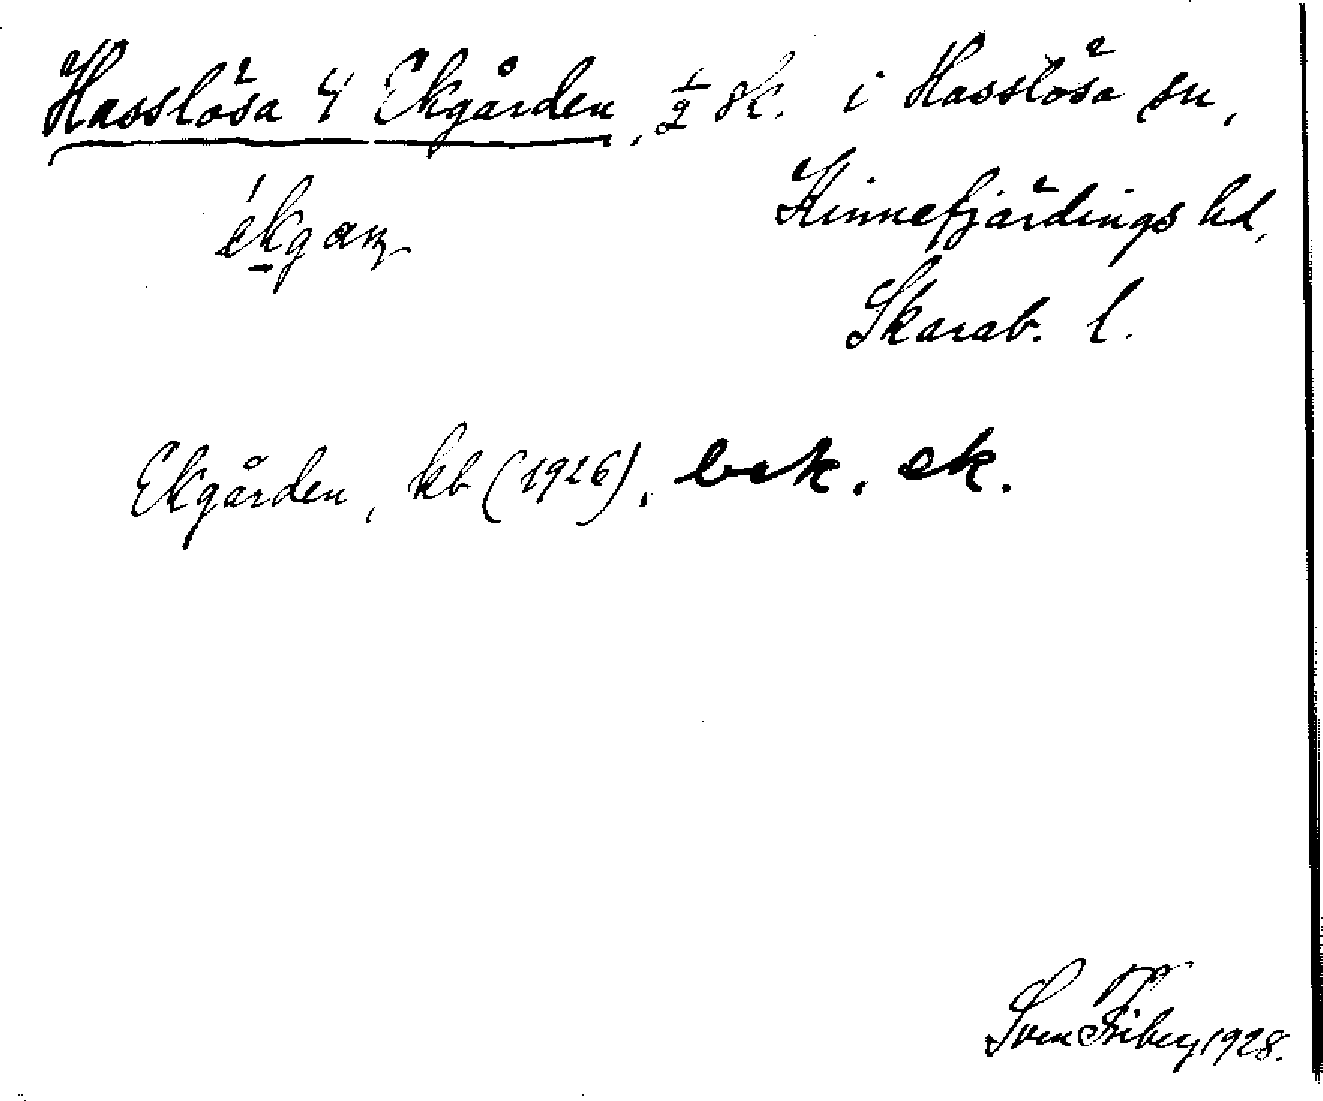 Hasslösa 4 Ekgården, 1/2 sk. i Hasslösa sn,
Kinnefjärdings hd,
Skarab. l.
Ekgården, kb (1926), bek. ek.
Sven Friberg 1928.